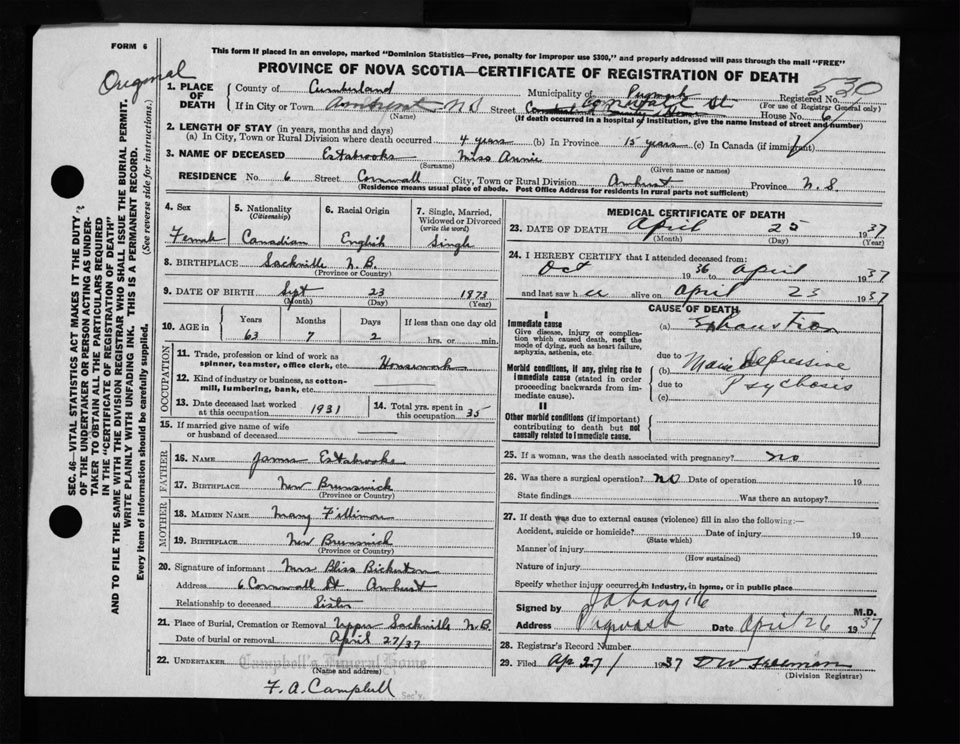 FORM 6
Original
This form if placed in an envelope, marked "Dominion Statistics—Free, penalty for improper use $300," and properly addressed will pass through the mail "FREE"
PROVINCE OF NOVA SCOTIA—CERTIFICATE OF REGISTRATION OF DEATH
530
1. PLACE OF DEATH
County of Cumberland Municipality of Pugwash Registered No.
(For use of Registrar General only)
If in City or Town Amherst N S Street Cornwall St House No. 6
(Name) (If death occurred in a hospital or institution, give the name instead of street and number)
2. LENGTH OF STAY (in years, months and days)
(a) In City, Town or Rural Division where death occurred 4 years (b) In Province 15 years (c) In Canada (if immigrant)
3. NAME OF DECEASED Estabrooks Miss Annie
(Surname) (Given name or names)
RESIDENCE No. 6 Street Cornwall City, Town or Rural Division Amherst Province N. S.
(Residence means usual place of abode. Post Office Address for residents in rural parts not sufficient)
4. Sex Female
5. Nationality (Citizenship) Canadian
6. Racial Origin English
7. Single, Married, Widowed or Divorced (write the word) Single
8. BIRTHPLACE Sackville N.B.
(Province or Country)
9. DATE OF BIRTH Sept 23 1873
(Month) (Day) (Year)
10. AGE in Years Months Days If less than one day old
63 7 2 hrs. or min.
OCCUPATION
11. Trade, profession or kind of work as spinner, teamster, office clerk, etc. Housework
12. Kind of industry or business, as cotton-mill, lumbering, bank, etc.
13. Date deceased last worked at this occupation 1931
14. Total yrs. spent in this occupation 35
15. If married give name of wife or husband of deceased
FATHER
16. NAME James Estabrooks
17. BIRTHPLACE New Brunswick
(Province or Country)
MOTHER
18. MAIDEN NAME Mary Fillimore
19. BIRTHPLACE New Brunswick
(Province or Country)
20. Signature of informant Mrs Bliss Bickerton
Address 6 Cornwall St Amherst
Relationship to deceased Sister
21. Place of Burial, Cremation or Removal Upper Sackville N.B.
Date of burial or removal April 27/37
22. UNDERTAKER Campbell's Funeral Home
(Name and address)
F. A. Campbell Sec'y.
MEDICAL CERTIFICATE OF DEATH
23. DATE OF DEATH April 25 1937
(Month) (Day) (Year)
24. I HEREBY CERTIFY that I attended deceased from:
Oct 1936 to April 1937
and last saw her alive on April 23 1937
CAUSE OF DEATH
I
Immediate cause
Give disease, injury or complication which caused death, not the mode of dying, such as heart failure, asphyxia, asthenia, etc.
(a) Exhaustion
due to
Morbid conditions, if any, giving rise to immediate cause (stated in order proceeding backwards from immediate cause).
(b) Manic Depressive
due to Psychosis
(c)
II
Other morbid conditions (if important) contributing to death but not causally related to immediate cause.
25. If a woman, was the death associated with pregnancy? no
26. Was there a surgical operation? no Date of operation 19
State findings Was there an autopsy?
27. If death was due to external causes (violence) fill in also the following:—
Accident, suicide or homicide? Date of injury 19
(State which)
Manner of injury
(How sustained)
Nature of injury
Specify whether injury occurred in industry, in home, or in public place
Signed by M.D.
Address Pugwash Date April 26 1937
28. Registrar's Record Number
29. Filed Ap 27/ 1937 D W Freeman
(Division Registrar)
SEC. 46—VITAL STATISTICS ACT MAKES IT THE DUTY
OF THE UNDERTAKER OR PERSON ACTING AS UNDER-
TAKER TO OBTAIN ALL THE PARTICULARS REQUIRED
IN THE "CERTIFICATE OF REGISTRATION OF DEATH"
AND TO FILE THE SAME WITH THE DIVISION REGISTRAR WHO SHALL ISSUE THE BURIAL PERMIT.
WRITE PLAINLY WITH UNFADING INK. THIS IS A PERMANENT RECORD.
Every item of information should be carefully supplied. (See reverse side for instructions.)